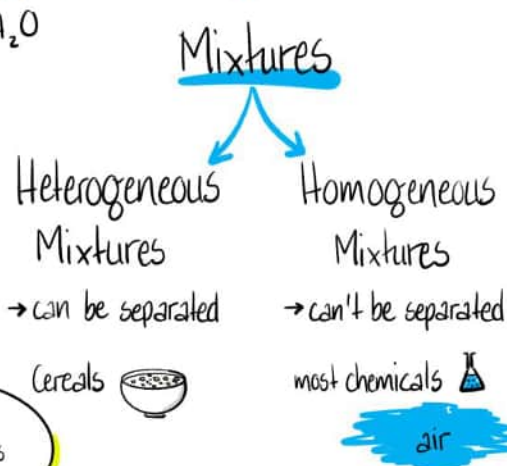 H₂O
Mixtures
Heterogeneous
Mixtures
→ can be separated
Cereals
Homogeneous
Mixtures
→ can't be separated
most chemicals
air